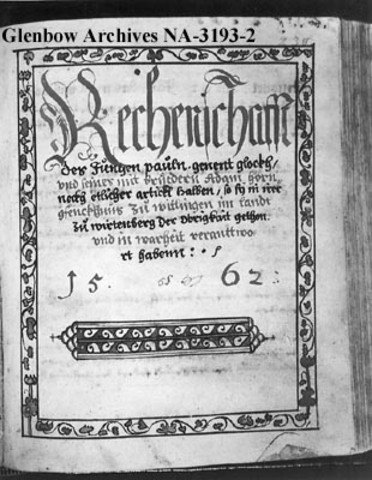 Glenbow Archives NA-3193-2
Rechenschafft
des Jungen pauln. genent glockh/
und seines mit bruedern Adam horn
etlicher artickl halben / so sy in irer
gfencknus zu willingen im landt
zu wirtenberg der obrigkait gethon.
und in warheit verantwo
rt habenn : · /
15. 62 :